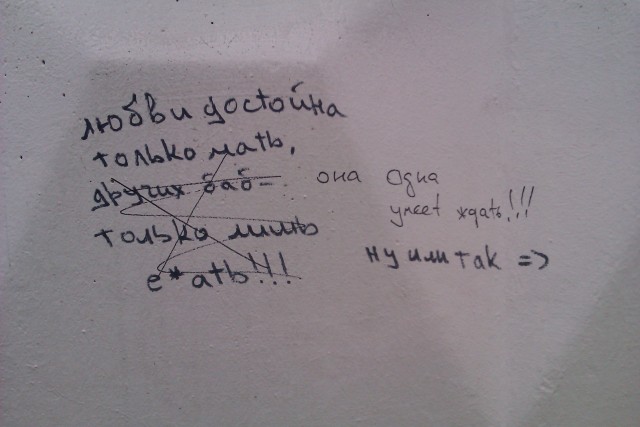 любви достойна
только мать,
других баб-
только лишь
е*ать!!!
она одна
умеет ждать!!!
ну или так =>